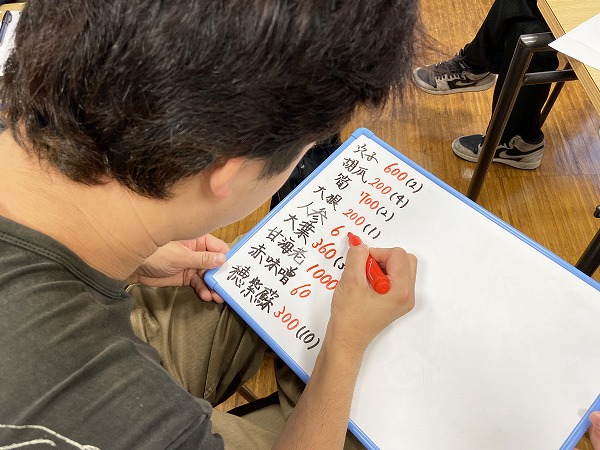 穴子 600(2)
胡瓜 200(4)
筍 700(2)
大根 200(1)
人参 6
大葉 360(3
甘海老 1000
赤味噌 60
穂紫蘇 300(10)